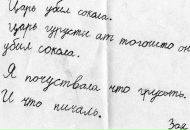 Царь убил сокала.
Царь грусти ат тогошто он
убил сокола.
Я почуствала что грусть.
И что пичаль.
Зая